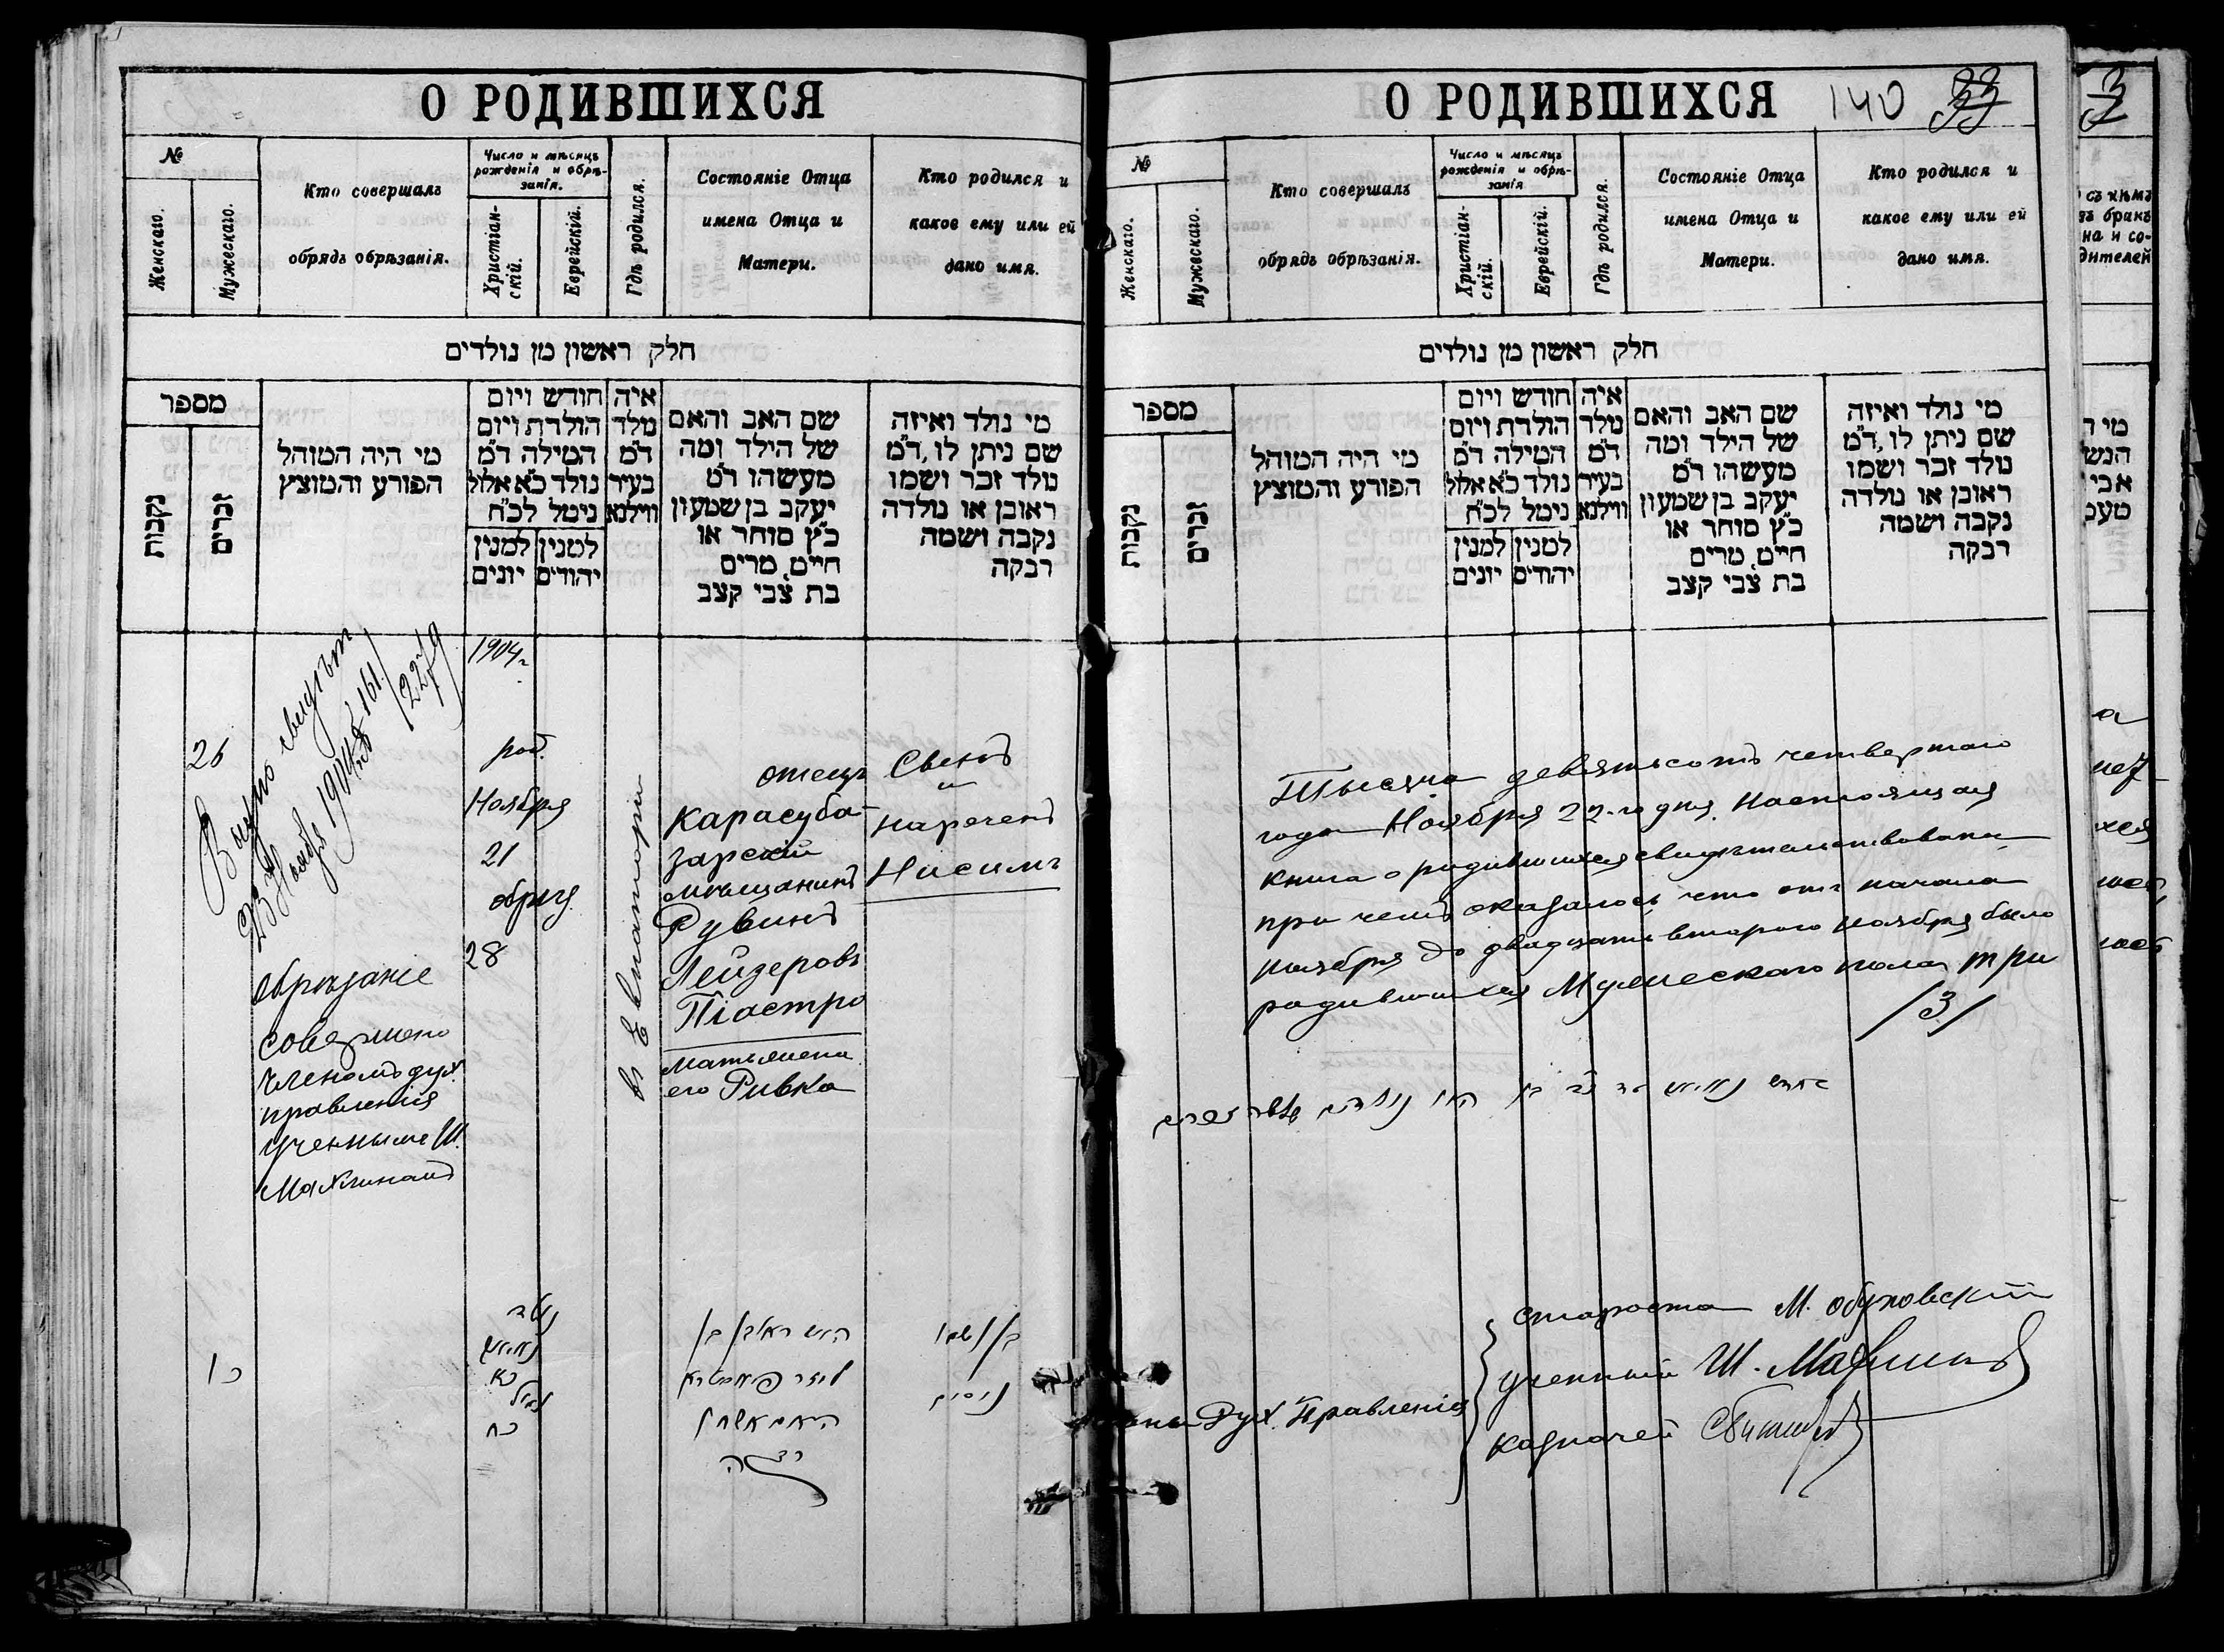 О РОДИВШИХСЯ
№
Женскаго.
Мужескаго.
Кто совершалъ
обрядъ обрѣзанія.
Число и мѣсяцъ
рожденія и обрѣ-
занія.
Христіан-
скій.
Еврейскій.
Гдѣ родился.
Состояніе Отца
имена Отца и
Матери.
Кто родился и
какое ему или ей
дано имя.
חלק ראשון מן נולדים
מספר
נקבות
זכרים
מי היה המוהל
הפורע והמוצץ
חודש ויום
הולדת ויום
המילה ד״מ
נולד כ״א אלול
נימל לכ״ח
למנין
יהודים
למנין
יונים
איה
נולד
ד״מ
בעיר
ווילנא
שם האב והאם
של הילד ומה
מעשהו ד״מ
יעקב בן שמעון
כ״ץ סוחר או
חייט, מרים
בת צבי קצב
מי נולד ואיזה
שם ניתן לו, ד״מ
נולד זכר ושמו
ראובן או נולדה
נקבה ושמה
רבקה
26
23 Ноября 1904
161
2279
обрѣзаніе
совершено
членомъ дух.
правленія
ученымъ Ш.
1904 г.
род.
Ноября
21
обрѣз.
28
въ Евпаторіи
отецъ
Карасуба-
зарскій
мѣщанинъ
Рувинъ
Лейзеровъ
Піастро
мать жена
его Ривка
Сынъ
и
нареченъ
Нисимъ
כו
כא
כח
ניסים
О РОДИВШИХСЯ 140
№
Женскаго.
Мужескаго.
Кто совершалъ
обрядъ обрѣзанія.
Число и мѣсяцъ
рожденія и обрѣ-
занія
Христіан-
скій.
Еврейскій.
Гдѣ родился.
Состояніе Отца
имена Отца и
Матери.
Кто родился и
какое ему или ей
дано имя.
חלק ראשון מן נולדים
מספר
נקבות
זכרים
מי היה המוהל
הפורע והמוצץ
חודש ויום
הולדת ויום
המילה ד״מ
נולד כ״א אלול
נימל לכ״ח
למנין
יהודים
למנין
יונים
איה
נולד
ד״מ
בעיר
ווילנא
שם האב והאם
של הילד ומה
מעשהו ד״מ
יעקב בן שמעון
כ״ץ סוחר או
חייט, מרים
בת צבי קצב
מי נולד ואיזה
שם ניתן לו, ד״מ
נולד זכר ושמו
ראובן או נולדה
נקבה ושמה
רבקה
Тысяча девятьсотъ четвертаго
года Ноября 22-го дня, настоящая
книга о родившихся свидѣтельствована
при чемъ оказалось что отъ начала
ноября до двадцать второго ноября было
родившихся Мужескаго пола три
/3/
староста М. Обуховскій
Дух. Правленія
ученый Ш.
казначей